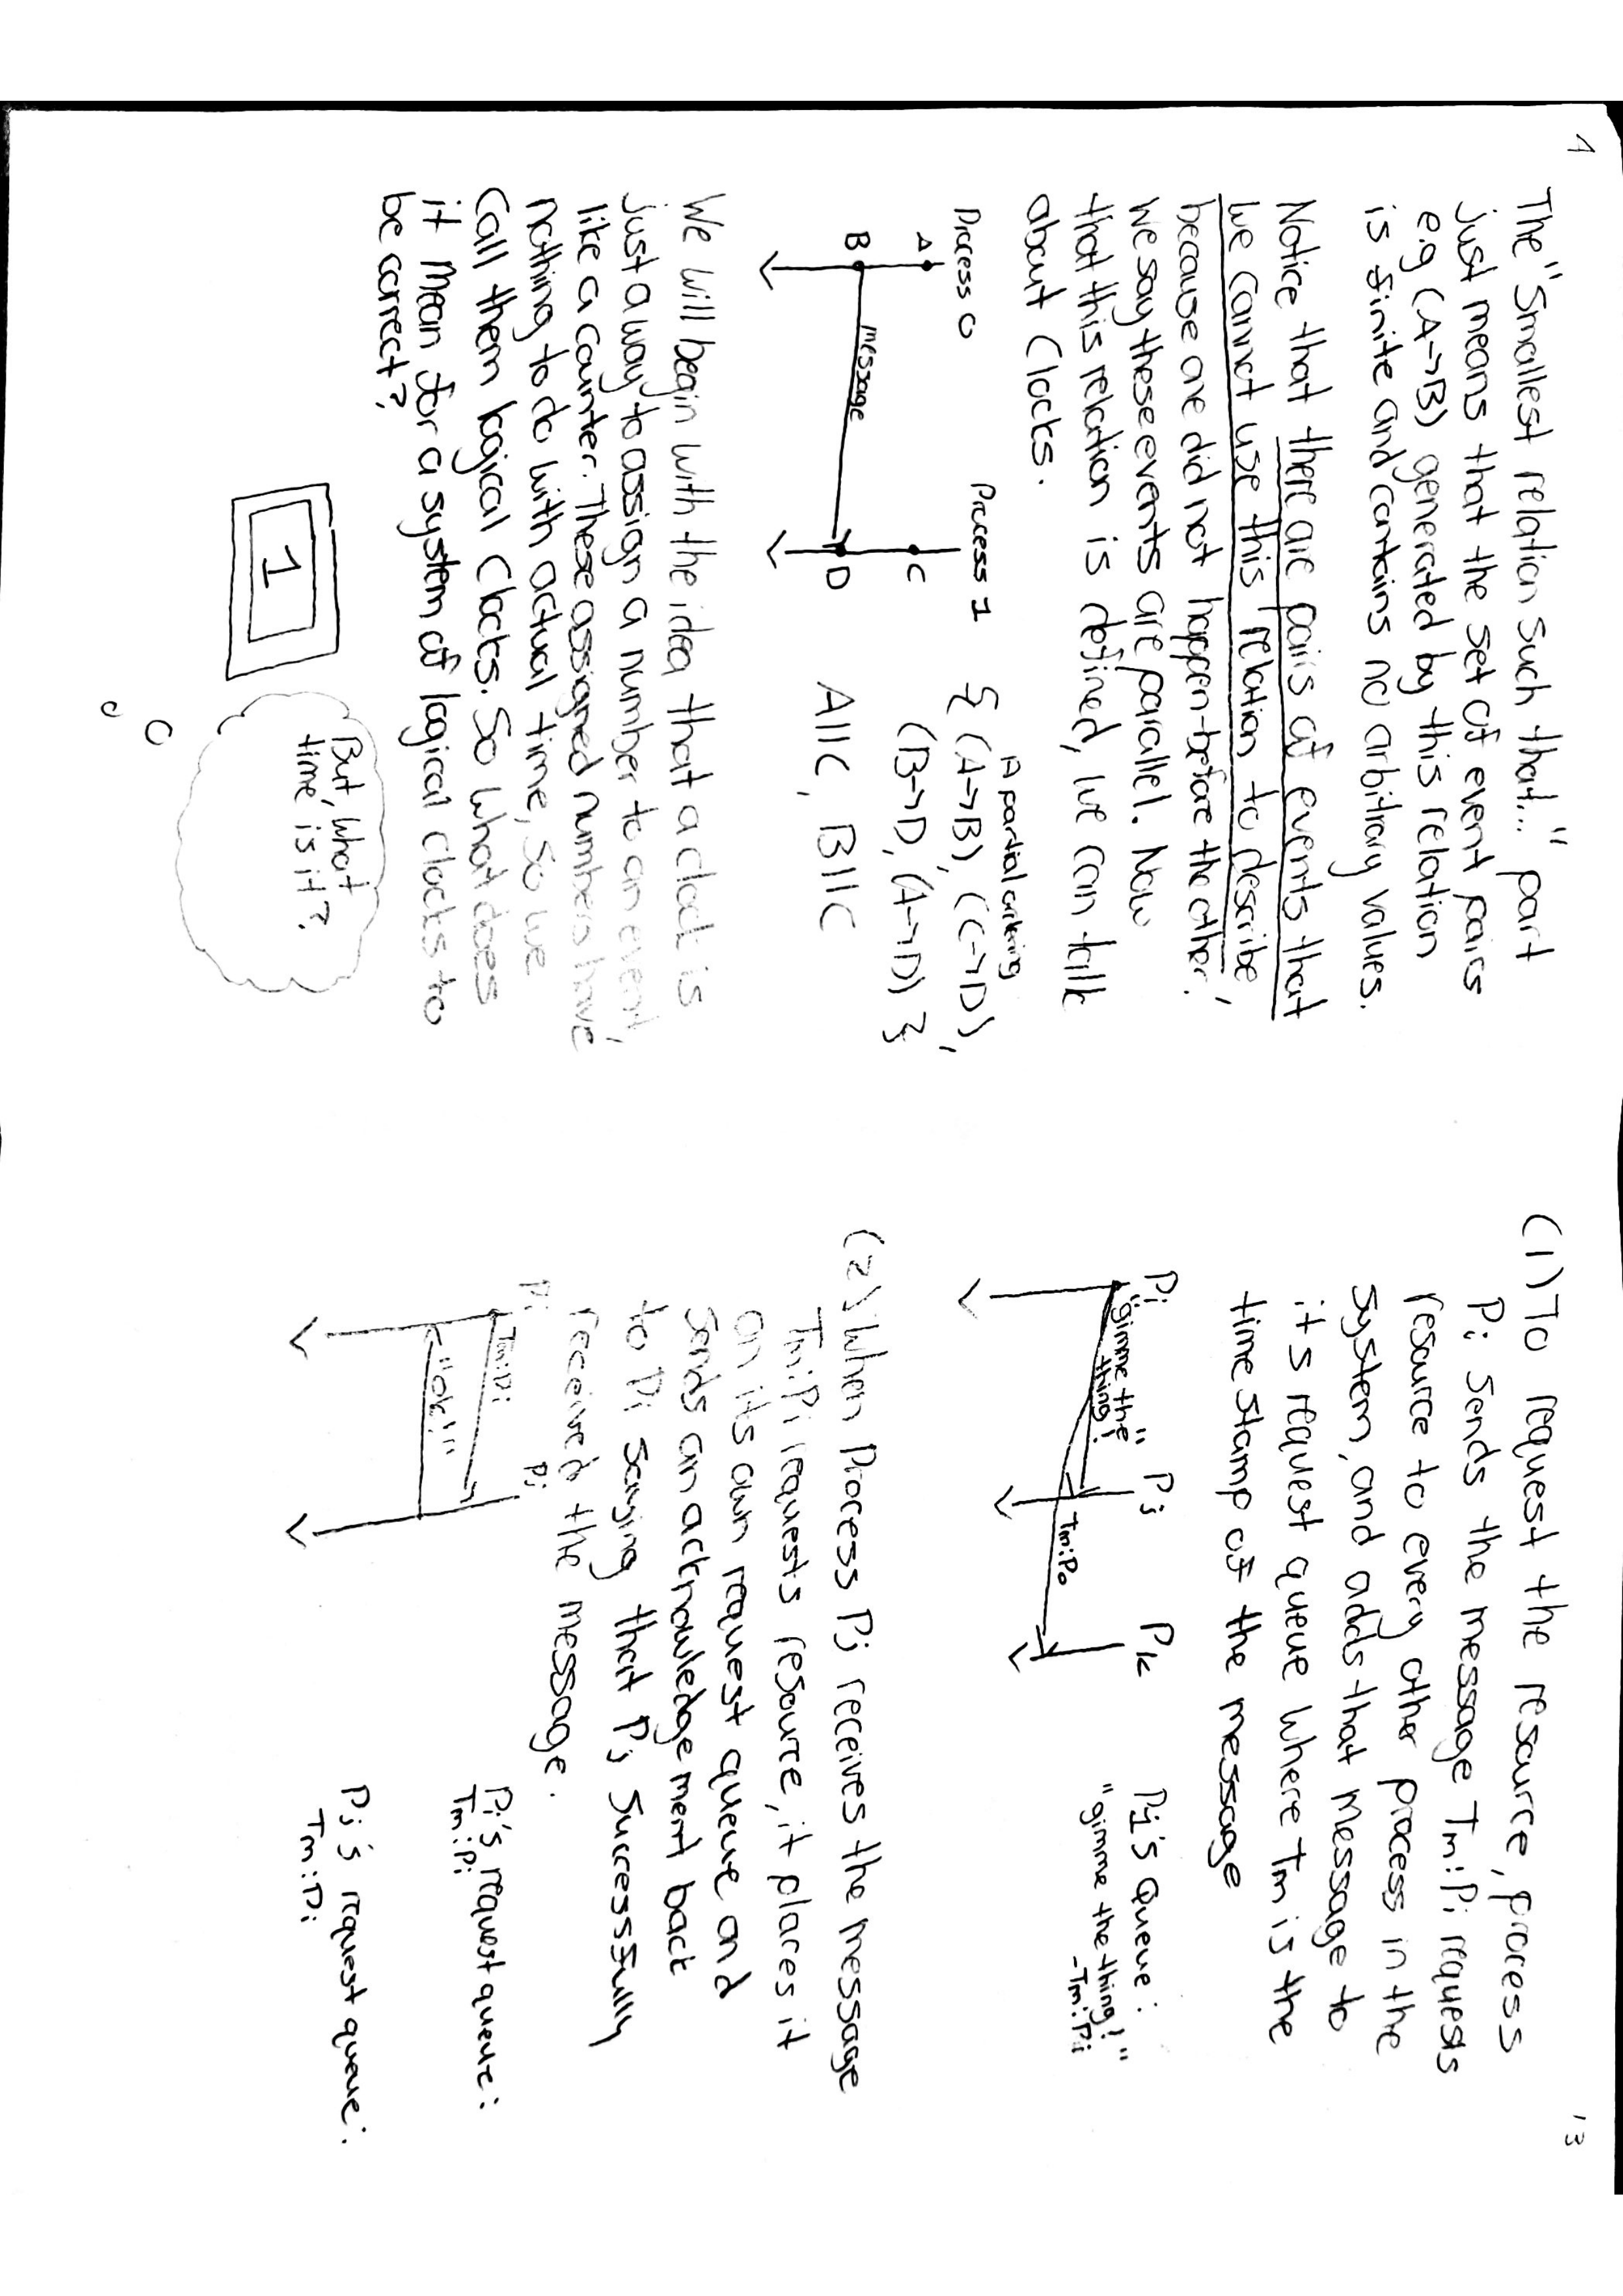 4
The "Smallest relation such that..." part
just means that the set of event pairs
e.g (A→B) generated by this relation
is finite and contains no arbitrary values.
Notice that there are pairs of events that
we cannot use this relation to describe,
because one did not happen-before the other.
We say these events are parallel. Now
that this relation is defined, we can talk
about Clocks.
Process 0
Process 1
A
B
message
C
D
A partial ordering
{ (A→B), (C→D),
(B→D), (A→D) }
A||C, B||C
We will begin with the idea that a clock is
just a way to assign a number to an event,
like a counter. These assigned numbers have
nothing to do with actual time, so we
Call them logical Clocks. So what does
it mean for a system of logical clocks to
be correct?
1
But, what
time is it?
13
(1) To request the resource, process
Pi sends the message Tm:Pi requests
resource to every other process in the
System, and adds that message to
it's request queue where Tm is the
timestamp of the message
Pi
Pj
Pk
"gimme the
thing!"
Tm:P0
Pj's Queue:
"gimme the thing!"
-Tm:Pi
(2) When Process Pj receives the message
Tm:Pi requests resource, it places it
on its own request queue and
sends an acknowledgement back
to Pi saying that Pj successfully
received the message.
Pi
Pj
Tm:Pi
"ok!"
Pi's request queue:
Tm:Pi
Pj's request queue:
Tm:Pi